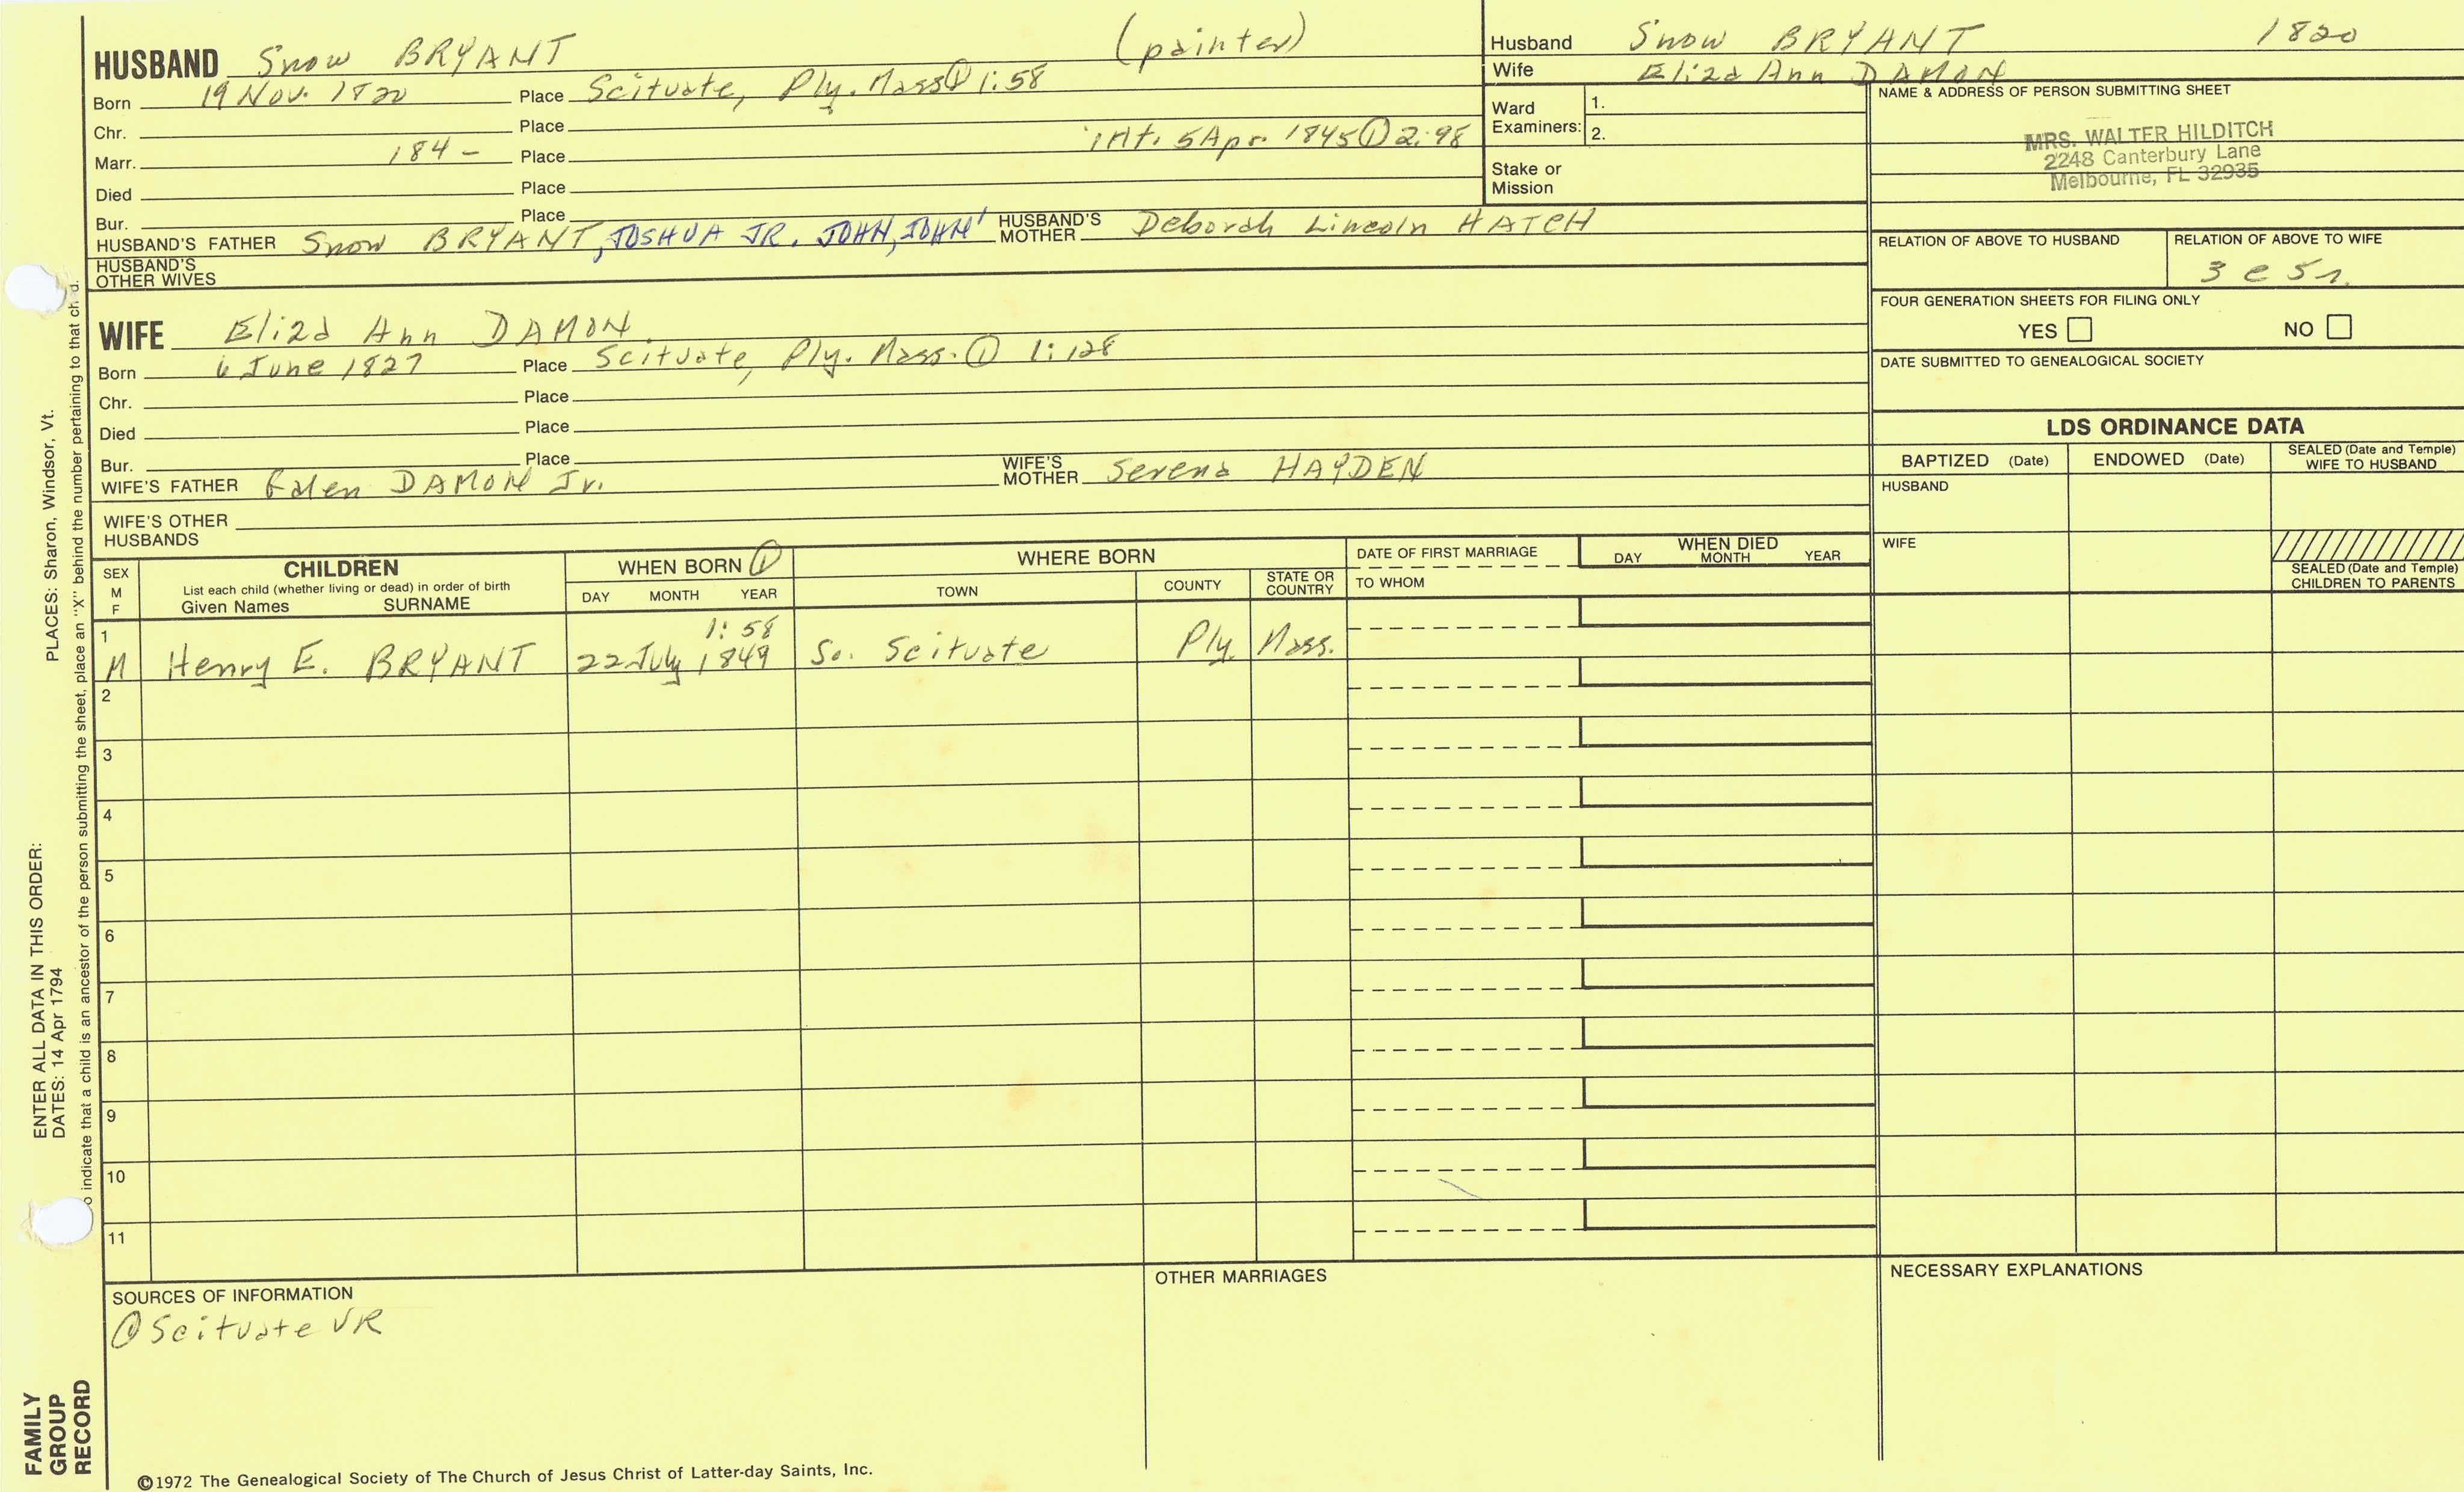 HUSBAND Snow BRYANT (painter)
Born 19 Nov. 1820 Place Scituate, Ply. Mass ① 1:58
Chr. Place
Marr. 184- Place int. 5 Apr 1845 ① 2:98
Died Place
Bur. Place
HUSBAND'S FATHER Snow BRYANT, JOSHUA JR. JOHN, JOHN' HUSBAND'S MOTHER Deborah Lincoln HATCH
HUSBAND'S OTHER WIVES
WIFE Eliza Ann DAMON
Born 6 June 1827 Place Scituate, Ply. Mass. ① 1:128
Chr. Place
Died Place
Bur. Place
WIFE'S FATHER Galen DAMON Jr. WIFE'S MOTHER Serena HAYDEN
WIFE'S OTHER HUSBANDS
Husband Snow BRYANT 1820
Wife Eliza Ann DAMON
Ward Examiners: 1.
2.
Stake or Mission
NAME & ADDRESS OF PERSON SUBMITTING SHEET
MRS. WALTER HILDITCH
2248 Canterbury Lane
Melbourne, FL 32935
RELATION OF ABOVE TO HUSBAND RELATION OF ABOVE TO WIFE
3 c 5 r.
FOUR GENERATION SHEETS FOR FILING ONLY
YES NO
DATE SUBMITTED TO GENEALOGICAL SOCIETY
LDS ORDINANCE DATA
BAPTIZED (Date) ENDOWED (Date) SEALED (Date and Temple) WIFE TO HUSBAND
HUSBAND
WIFE
SEALED (Date and Temple) CHILDREN TO PARENTS
SEX M F
CHILDREN
List each child (whether living or dead) in order of birth
Given Names SURNAME
WHEN BORN ①
DAY MONTH YEAR
WHERE BORN
TOWN COUNTY STATE OR COUNTRY
DATE OF FIRST MARRIAGE
TO WHOM
WHEN DIED
DAY MONTH YEAR
1 1:58
M Henry E. BRYANT 22 July 1849 So. Scituate Ply. Mass.
2
3
4
5
6
7
8
9
10
11
SOURCES OF INFORMATION
① Scituate VR
OTHER MARRIAGES
NECESSARY EXPLANATIONS
©1972 The Genealogical Society of The Church of Jesus Christ of Latter-day Saints, Inc.
FAMILY GROUP RECORD
ENTER ALL DATA IN THIS ORDER:
DATES: 14 Apr 1794 PLACES: Sharon, Windsor, Vt.
o indicate that a child is an ancestor of the person submitting the sheet, place an "X" behind the number pertaining to that ch d.